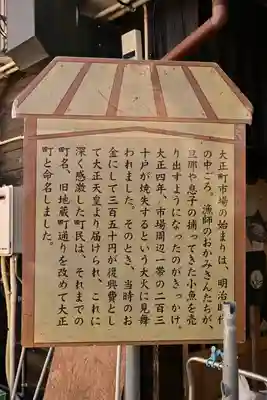 大正町市場の始まりは、明治時代
の中ごろ。漁師のおかみさんたちが、
旦那や息子の捕ってきた小魚を売
り出すようになったのがきっかけ。
大正四年、市場周辺一帯の二百三
十戸が焼失するという大火に見舞
われました。そのとき、当時のお
金にして三百五十円が復興費とし
て大正天皇より届けられ、これに
深く感激した町民は、それまでの
町名、旧地蔵町通りを改めて大正
町と命名しました。